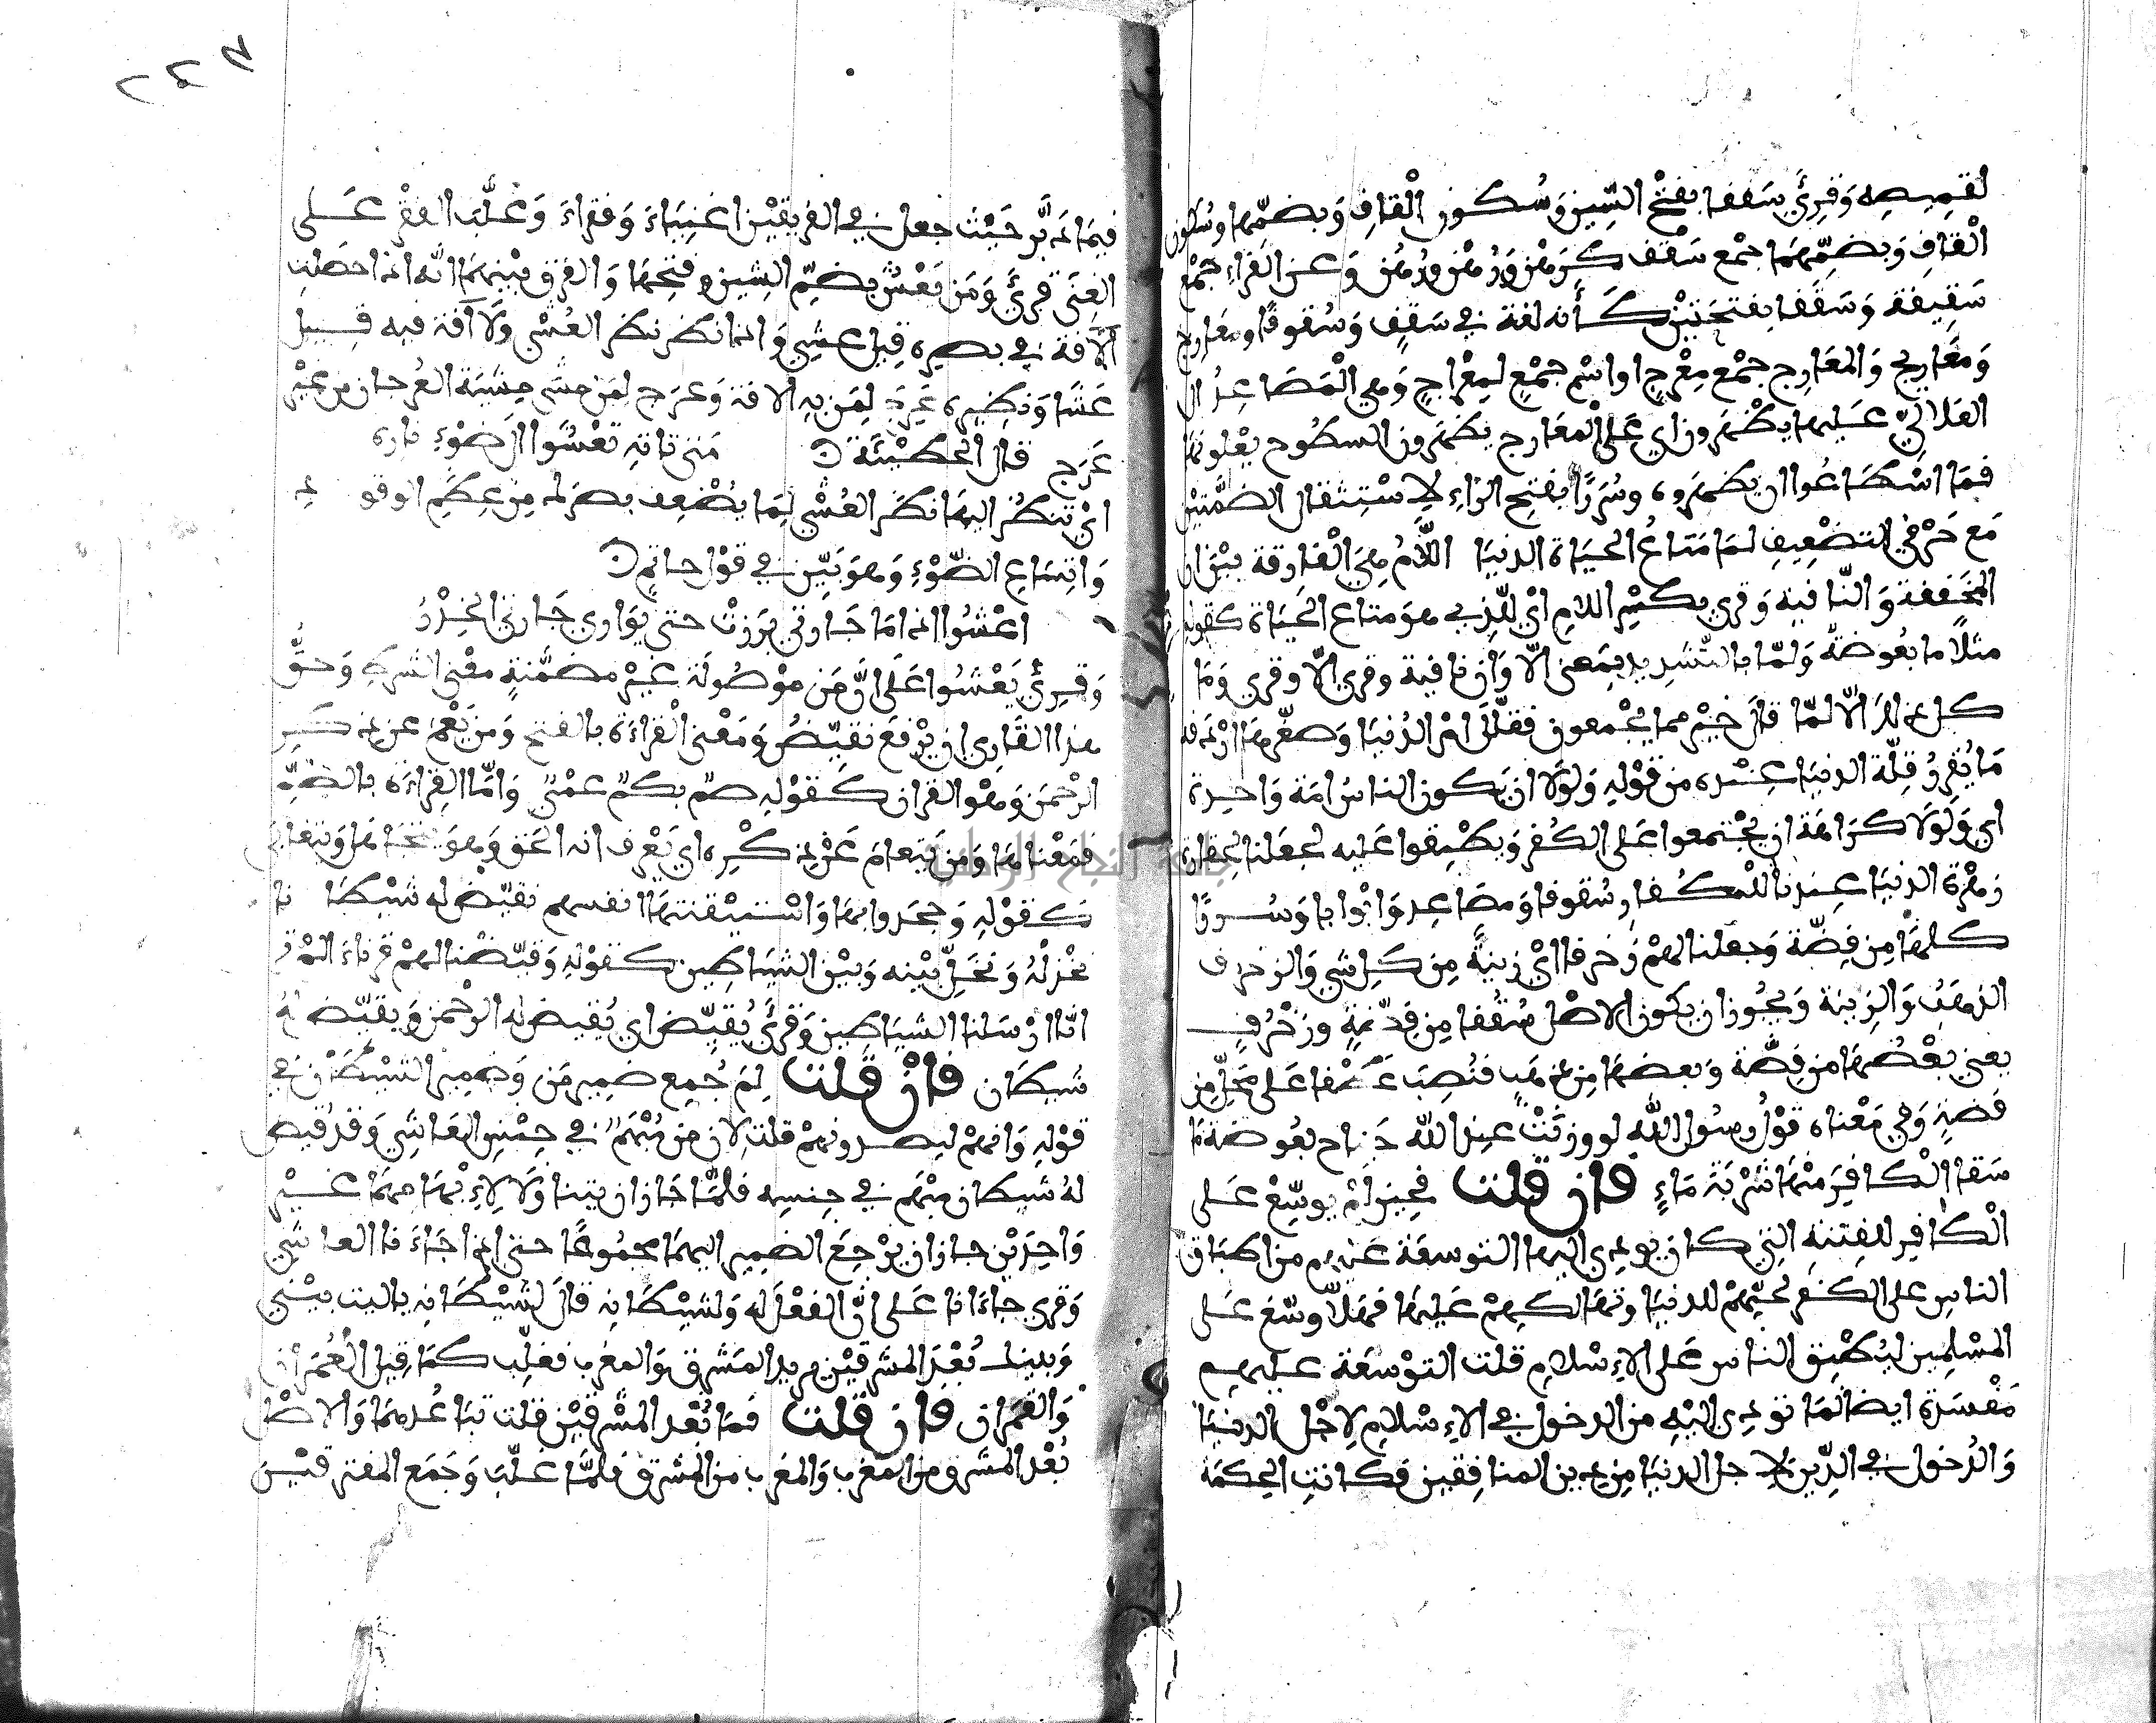 لقميصه وَقرِئَ سَقفا بفتْح السِّين وَسُكون الْقافِ وَبضمّها وسُكون
الْقافِ وَبضمِّهمَا جمْع سَقْف كرَهْن وَرُهْن ورُهُن وَعن الفرَّاءِ جمْع
سَقِيفة وَسَقَفا بفتحَتيْن كَأنه لغة في سَقفٍ وَسُقوفًا ومَعارج
وَمَعَاريج وَالمعَارِج جمْع مِعْرج او اسْم جمْعٍ لمِعْراجٍ وَهي الْمَصَاعِدُ الى
العَلالِيّ عَليها يظْهَرون اي عَلى الْمعَارج يظهَرون السطُوح يعْلونها
فمَا اسْطَاعُوا ان يظهَروه وسُرَرًا بفتح الرّاءِ لاسْتِثقال الضمَّتيْن
مَع حَرْفي التضْعِيفِ لمَا مَتاعُ الحيَاة الدنيَا اللّامُ هِيَ الْفارقة بيْن ان
المخَففة وَالنّافية وَقرئ بكسْرِ اللام ايْ للّذي هوَ متاع الحَياة كقوله
مثلا ما بعُوضةٌ وَلمّا بالتّشدِيد بمَعنى الّا وَان نافية وقرئ الّا وقرئ وَمَا
كل ذلك الّا لمّا قالَ خيْر مما يجْمعون فقلّلَ امْر الدُّنيَا وَصغّرهَا ارْدَفه
مَا يُقرِرُ قلّة الدنيَا عِنْده من قوْلهِ وَلوْلَا ان يَكون الناسُ امَة وَاحِدة
اي وَلوْلَا كرَاهَة ان يجْتمعوا عَلى الكُفر وَيطْبِقوا عَليه لجعَلنا لحقارة
زهْرة الدنيَا عِندنا للْكُفارِ سُقوفا وَمصَاعِد وَابْوابا وَسُررًا
كلهَا مِن فِضّة وَجعلنا لهمْ زُخرفا ايْ زينةً مِن كلِ شي وَالزخرف
الذهَبُ وَالزينة وَيجُوز ان يكون الاصْل سُقُفا مِن فِضّةٍ وزخْرُفٍ
يعني بعْضُهَا من فِضّة وَبعضهَا مِن ذهبٍ فنُصِبَ عَطْفا عَلى مَحَلِّ مِن
فضةٍ وَفي مَعْناه قوْلُ رسُول اللهِ لو وزنَتْ عِند الله جَناح بعُوضة مَا
سَقا الْكافِرَ منْهَا شَرْبَة مَاءٍ فإن قلت فحِين لمْ يوسِّعْ عَلى
الْكافِرِ للفِتنه التِي كان يؤدي اليها التوسعَة عَليهم من اطبَاق
الناسِ على الكفر لحبِّهمْ للدنيَا وَتهَالكهِمْ عَليهَا فهَلّا وسّعَ عَلى
المسْلمِين ليُطْبِق الناس عَلى الإسْلامِ قلت التوْسعَة عليهِم
مَفْسَدة ايضا لمَا تؤدي اليْهِ من الدخول في الإسْلامِ لِاجْل الدنيَا
وَالدُخول في الدِّين لِاجل الدنيَا مِن دين المنافِقين فَكانت الحِكمَة
فيمَا دَبَّر حَيْث جعل في الفريقيْن اغنِيَاءَ وَفقراءَ وَغلَّبَ الفقْر عَلى
الغِنَى قرِئَ وَمَن يَعْشُ بضمِّ الشِين وفتحِهَا وَالفرق بيْنهمَا انّه اذا حصَلتِ
الآفة في بصرِه قِيل عشِيَ وَاذا نظر نظر العُشْيِ وَلَا آفَة فيه قِيل
عَشَا وَنظِيره عَرِجَ لمَن به الافة وَعرَج لمَن مشى مِشْيَة العُرجان من غيْر
عَرَج قال الحطَيْئَة مَتى تاته تعْشُوا الى ضَوْءِ ناره
ايْ تنظُر اليهَا نظَر العُشْي لِمَا يضْعِف بصرَك مِن عِظَمِ الوقود
وَاتِسَاعِ الضّوْءِ وَهوَ بَيِّن في قوْل حاتمٍ
اعْشُوا اذا مَا جَارتي برَزتْ حتى يوَاري جَارتي الخِدْرُ
وَقرِئَ يَعْشُوا عَلى انَّ مَن موْصُولَة غيْر مضمَّنةٍ معْنى الشرط وَحقُّ
هذا القَارِي ان يرْفعَ نقيّضُ وَمَعْنى الْقراءَة بالفتح وَمَن يَعْمَ عن ذكرِ
الرحْمَن وَهوَ القران كقوْلهِ صمٌ بكمٌ عمْيٌ وَامّا القِراءَة بالضمِّ
فمعْناهَا وَمَن يتعامَ عَنْ ذكْرِه اي يَعْرف انه الحَق وَهوَ يتجَاهَل وَيتعَامى
كقوْلهِ وَجحَدوا بهَا وَاسْتيْقنتهَا انفسهم نقيّض له شَيْطَانا
نخْذلْهُ وَنخَلِّ بيْنه وَبيْن الشيَاطِين كقوْلهِ وَقيّضْنا لهمْ قرناءَ المْ تر
انّا ارْسَلنا الشيَاطِين وَقرِئَ يُقيِّض اي يُقيض له الرحْمن وَيقيّض لهُ
شيطَان فإن قلت لِمَ جُمِع ضمِير مَن وَضمِير الشيْطَان في
قوْلهِ وَانهمْ ليصدونهمْ قلت لان مَن مُبْهَمٌ في جِنْسِ العَاشِي وَقد قيض
لهُ شيطان مبْهَم في جنسِه فلمَّا جَاز ان يتناولا لإبْهَامهمَا غيْر
وَاحِدَيْن جاز ان يرْجعَ الضمِير اليهمَا مجمُوعًا حتى اذا جَاءَنا العاشِي
وَقرئ جاءانا عَلى انَّ الفعْلَ له وَلشيْطَانه قالَ لشيْطَانه يا ليت بيْني
وَبينك بُعْدَ المشْرقيْن يريد المَشرق وَالمغرب فغلّب كمَا قِيل العُمَرَان
وَالقمَران فإن قلت فمَا بُعْد المشْرقيْن قلت تبَاعُدهمَا وَالاصْل
بُعْد المشرق من المغرب وَالمغرب من المشرق فلمَّا غلّبَ وَجَمَع المفترقيْن